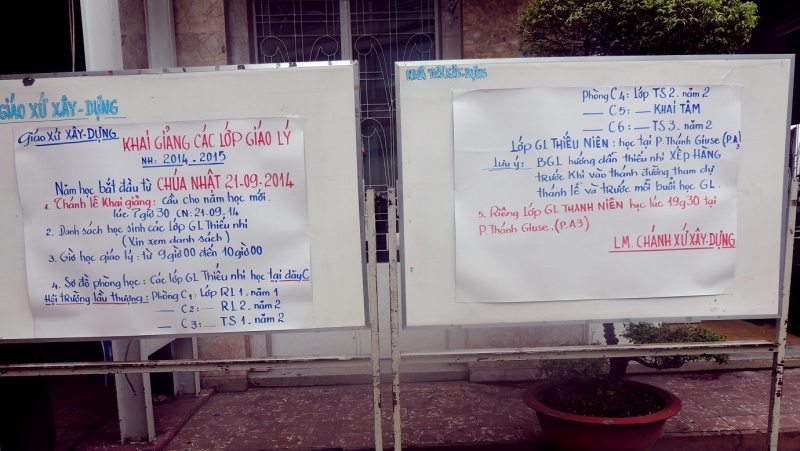 GIÁO XỨ XÂY-DỰNG
Giáo XỨ XÂY-DỰNG
KHAI GIẢNG CÁC LỚP GIÁO LÝ
NH: 2014-2015
Năm học bắt đầu từ CHÚA NHẬT 21-09-2014
1. Thánh lễ Khai giảng: cầu cho năm học mới.
lúc 7giờ30 CN: 21.09.14
2. Danh sách học sinh các Lớp GL Thiếu nhi
(Xin xem danh sách)
3. Giờ học giáo lý: từ 9giờ00 đến 10giờ00
4. Sơ đồ phòng học: Các lớp GL Thiếu nhi học tại dãy C
Hội trường lầu thượng: Phòng C1: Lớp RL1. năm 1
— C2: — RL2. năm 2
— C3: — TS1. năm 2
NHÀ THỜ XÂY-DỰNG
Phòng C4: Lớp TS2. năm 2
— C5: — KHAI TÂM
— C6: — TS3. năm 2
Lớp GL THIẾU NIÊN: học tại P. Thánh Giuse (P.A3)
Lưu ý: BGL hướng dẫn thiếu nhi XẾP HÀNG
trước Khi vào thánh đường tham dự
thánh lễ và trước mỗi buổi học GL.
5. Riêng Lớp GL THANH NIÊN học lúc 19g30 tại
P. Thánh Giuse. (P.A3)
LM. CHÁNH XỨ XÂY-DỰNG